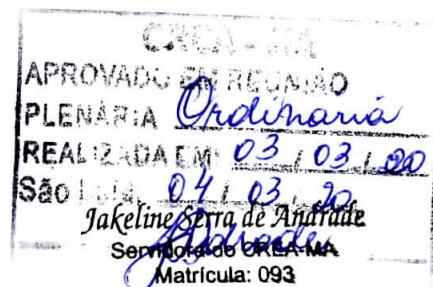 CREA - MA
APROVADO EM REUNIÃO
PLENÁRIA Ordinaria
REALIZADA EM 03 / 03 / 20
São 04 / 03 / 20
Jakeline Serra de Andrade
Servidora do CREA-MA
Matrícula: 093